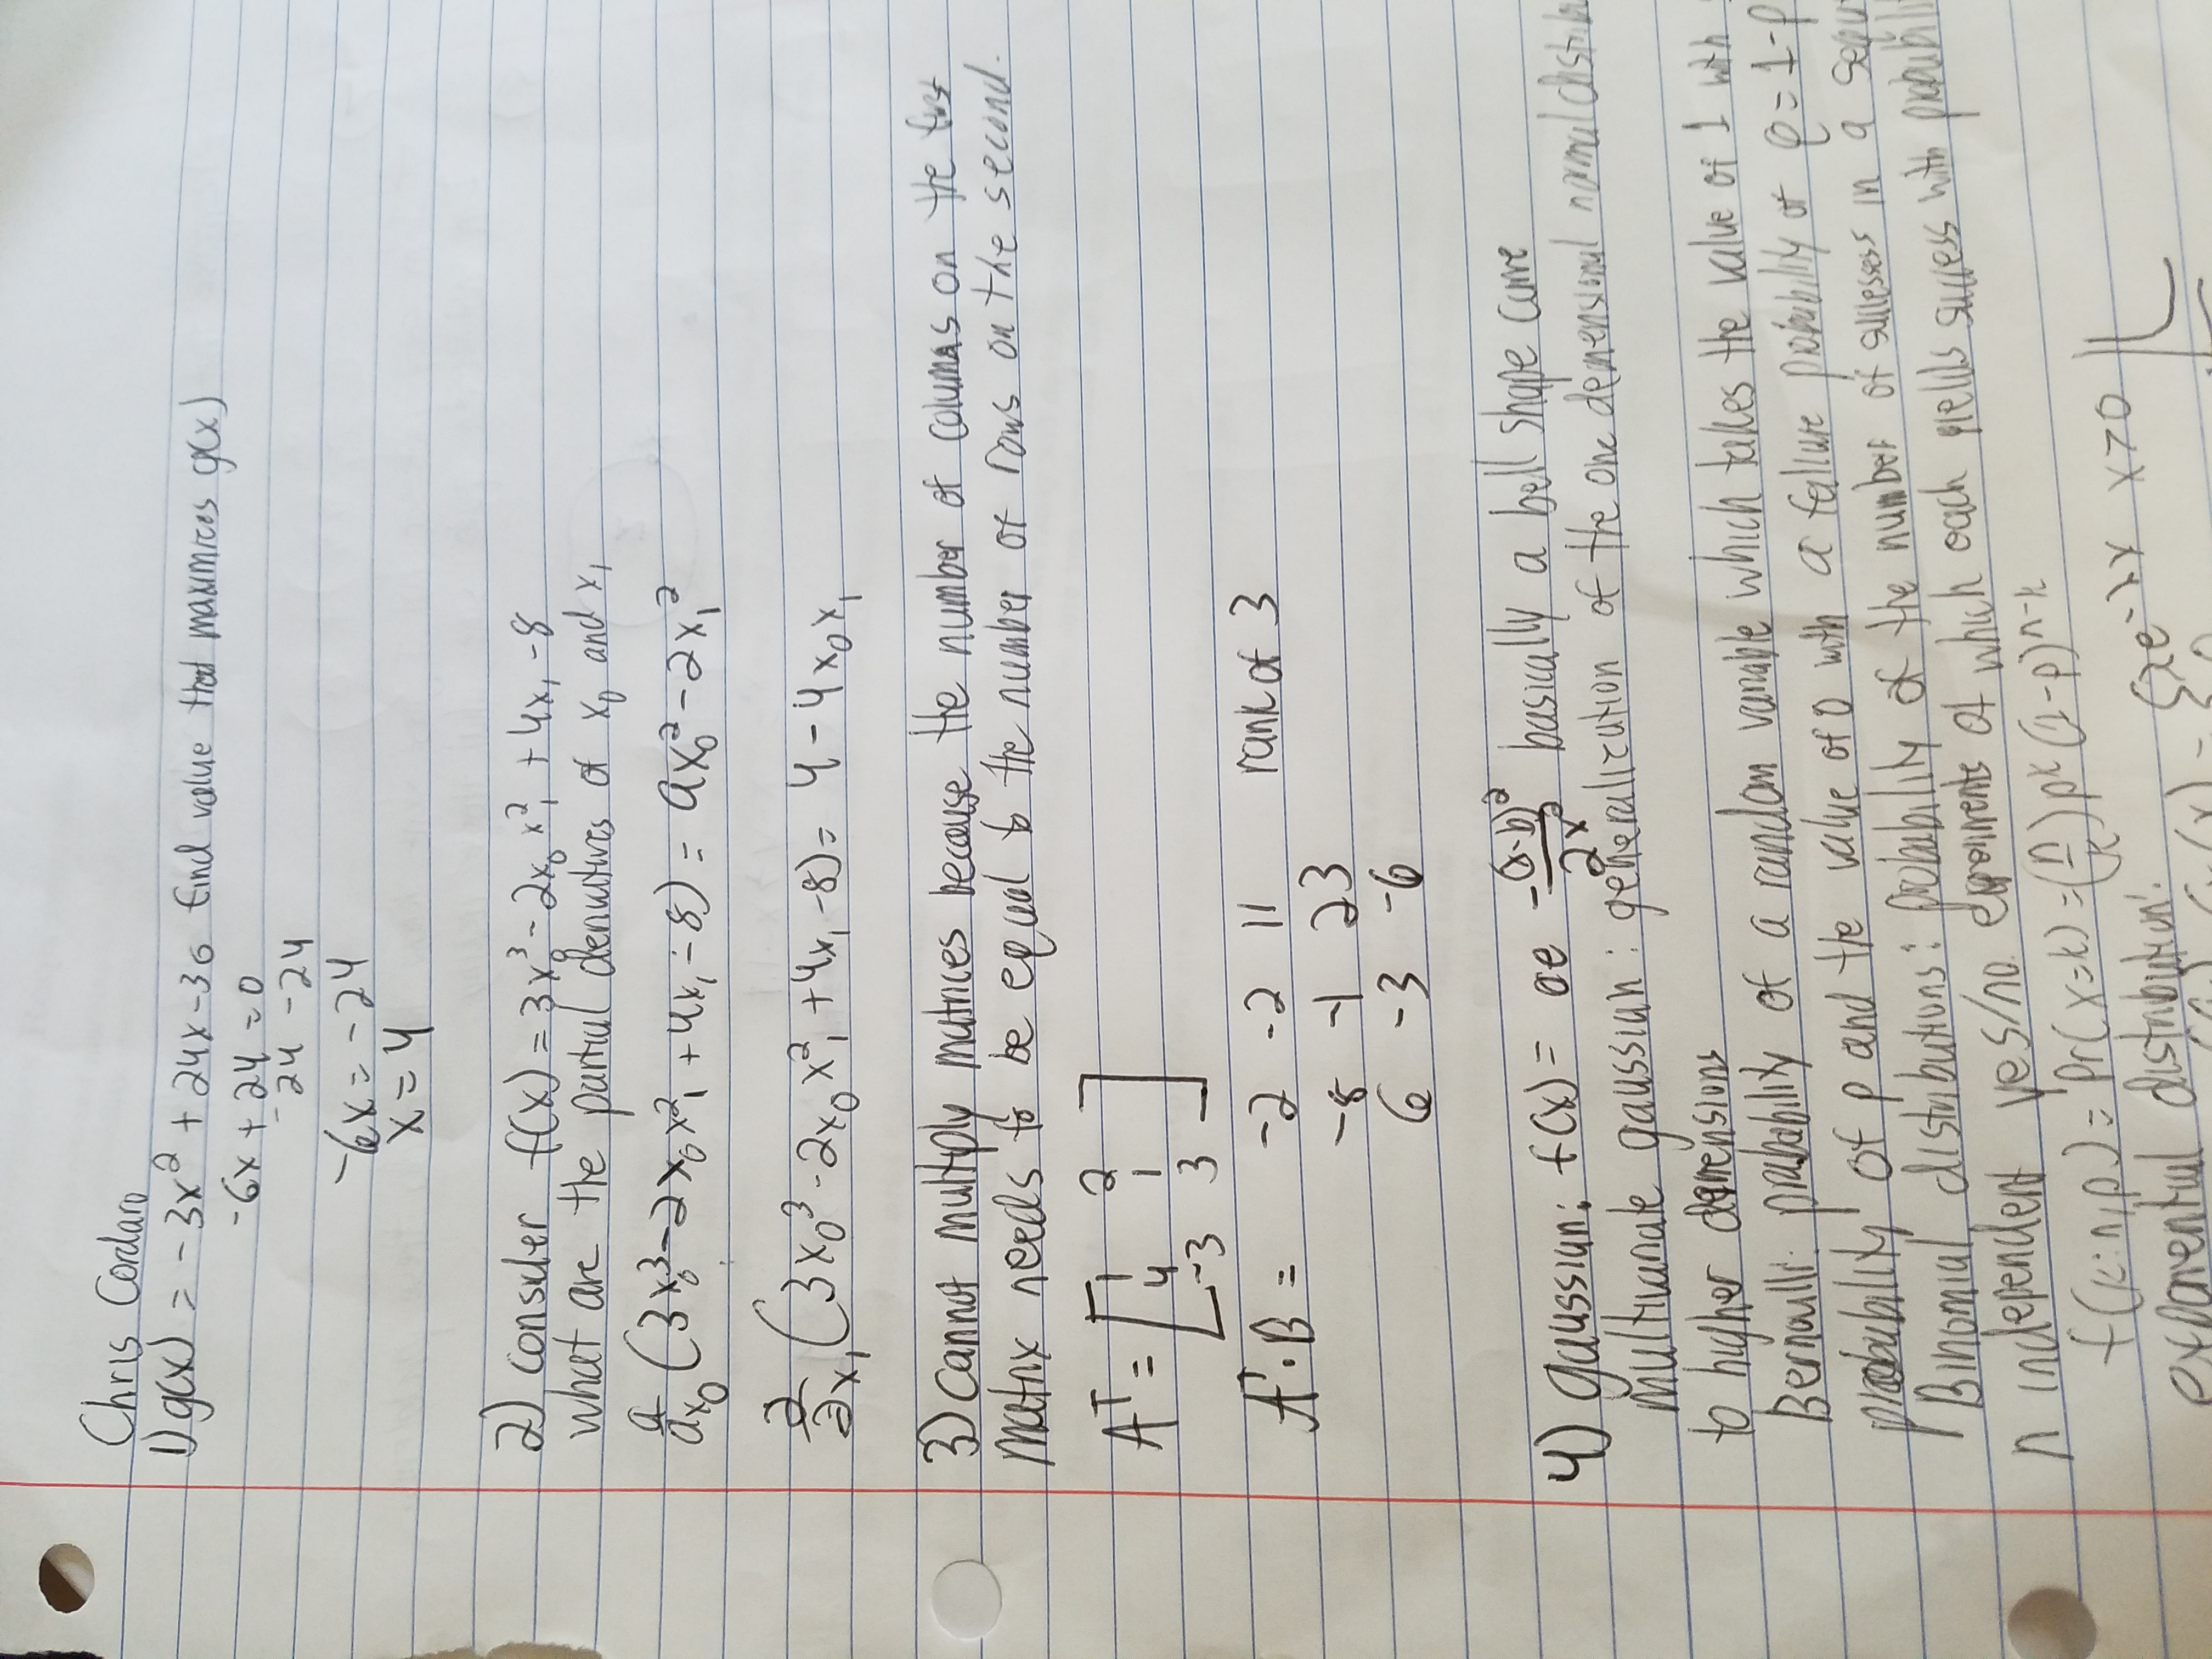 Chris Cordaro
1) g(x) = -3x² + 24x - 30 find value that maximizes g(x)
-6x + 24 = 0
-24 -24
-6x = -24
x = 4
2) consider f(x) = 3x₀³ - 2x₀x₁² + 4x₁ - 8
what are the partial derivatives of x₀ and x₁
∂/∂x₀ (3x₀³ - 2x₀x₁² + 4x₁ - 8) = 9x₀² - 2x₁²
∂/∂x₁ (3x₀³ - 2x₀x₁² + 4x₁ - 8) = 4 - 4x₀x₁
3) Cannot multiply matrices because the number of columns on the first
matrix needs to be equal to the number of rows on the second.
Aᵀ = [1 2
4 1
-3 3]
Aᵀ·B = -2 -2 11 rank of 3
-8 -1 23
6 -3 -6
4) gaussian: f(x) = ae -(x-b)²/2x² basically a bell shape curve
multivariate gaussian: generalization of the one demensional normal distribu
to higher demensions
Bernoulli: probability of a random variable which takes the value of 1 with
probability of p and the value of 0 with a failure probability of q = 1-p
Binomial distributions: probability of the number of successess in a sequ
n independent yes/no experiments of which each yields success with probabili
f(k:n,p) = Pr(x=k) = (n/k) pᵏ (1-p)ⁿ⁻ᵏ
exponential distribution:
λe^-λx x>0